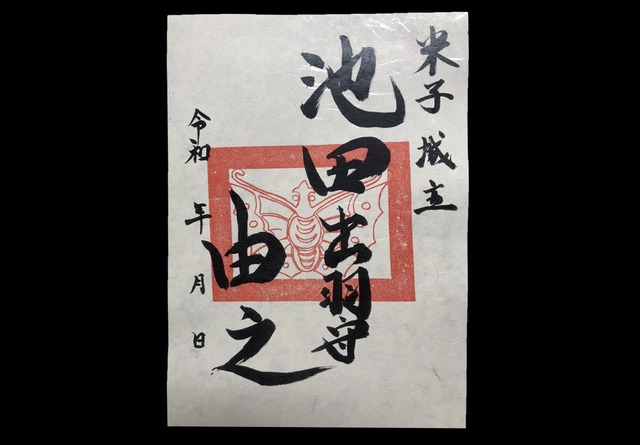 米子城主
池田出羽守
由之
令和 年 月 日